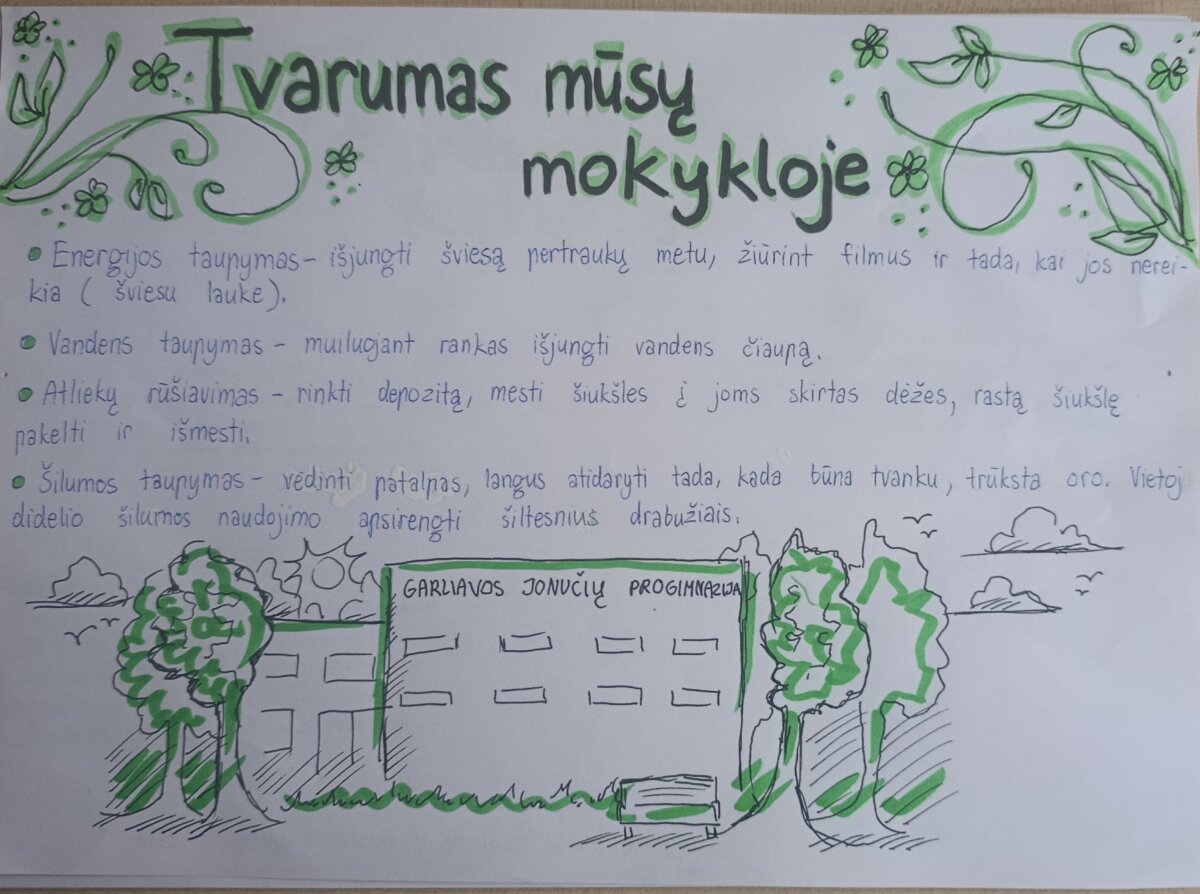 Tvarumas mūsų
mokykloje
• Energijos taupymas - išjungti šviesą pertraukų metu, žiūrint filmus ir tada, kai jos nerei-
kia ( šviesu lauke).
• Vandens taupymas - muiluojant rankas išjungti vandens čiaupą.
• Atliekų rūšiavimas - rinkti depozitą, mesti šiukšles į joms skirtas dėžes, rastą šiukšlę
pakelti ir išmesti.
• Šilumos taupymas - vėdinti patalpas, langus atidaryti tada, kada būna tvanku, trūksta oro. Vietoj
didelio šilumos naudojimo apsirengti šiltesniuš drabužiais.
GARLIAVOS JONUČIŲ PROGIMNAZIJA